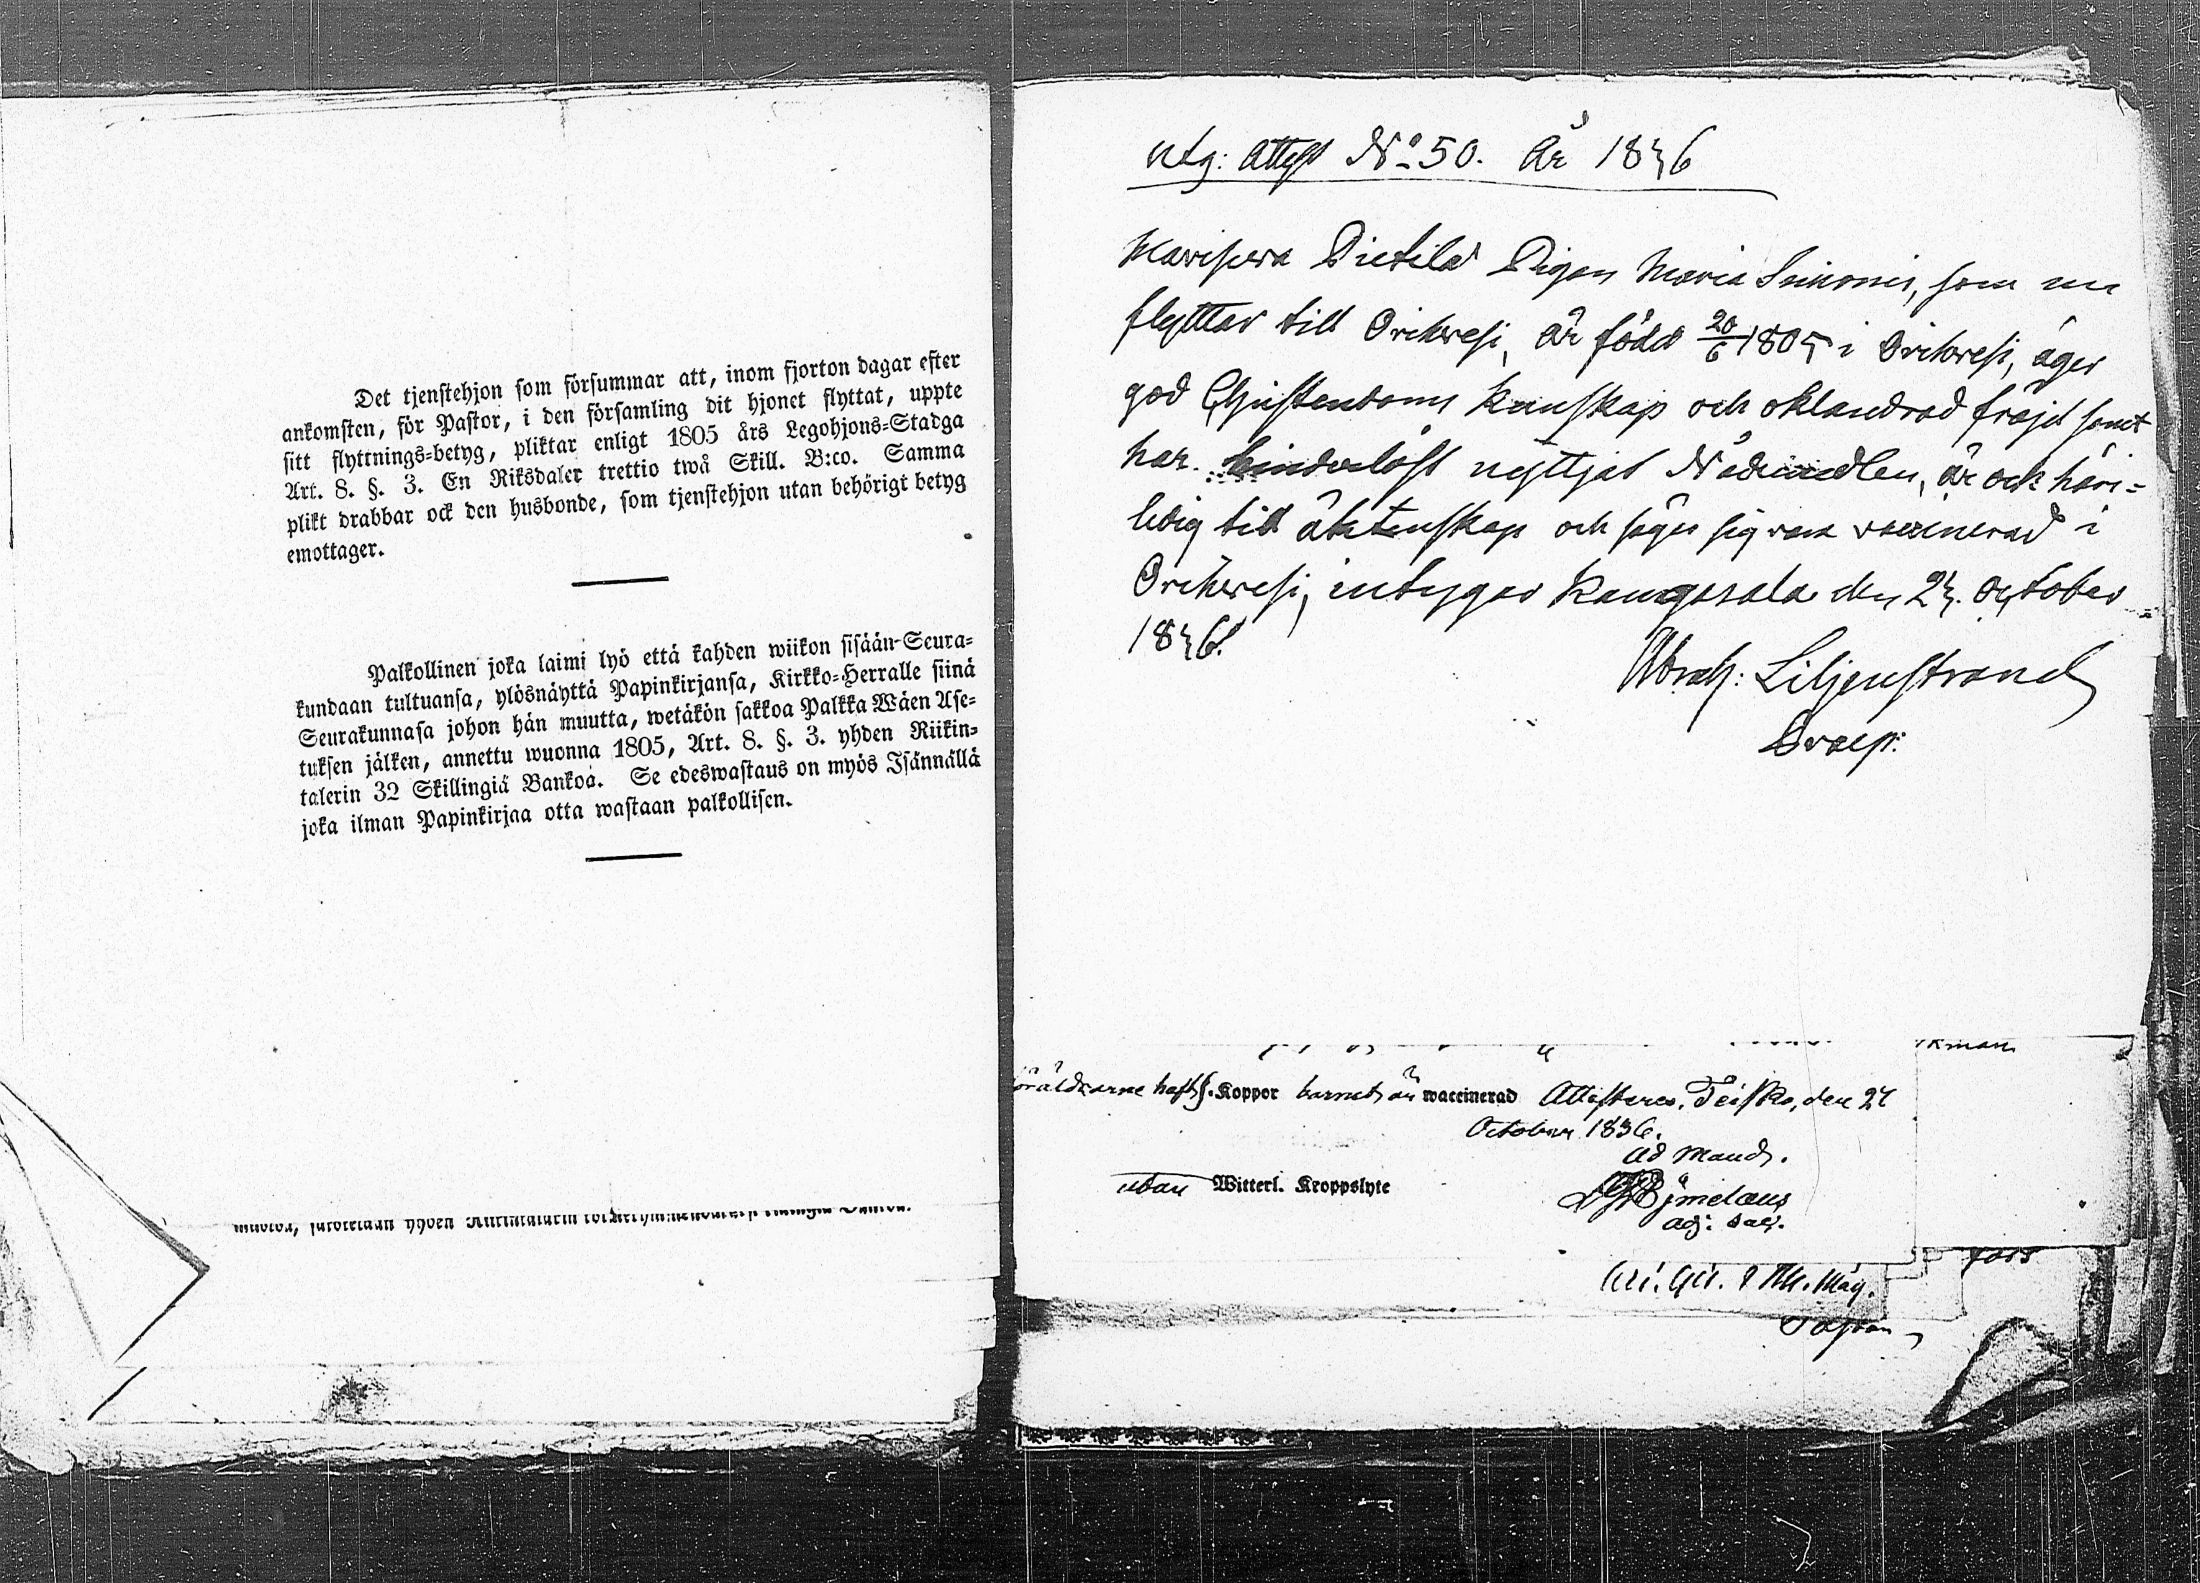 Det tjenstehjon som försummar att, inom fjorton dagar efter
ankomsten, för Pastor, i den församling dit hjonet flyttat, uppte
sitt flyttnings=betyg, pliktar enligt 1805 års Legohjons=Stadga
Art. 8. §. 3. En Riksdaler trettio twå Skill. B:co. Samma
plikt drabbar ock den husbonde, som tjenstehjon utan behörigt betyg
emottager.
Palkollinen joka laimi lyö että kahden wiikon sisään Seura=
kundaan tultuansa, ylösnäyttä Papinkirjansa, Kirkko=Herralle siinä
Seurakunnasa johon hän muutta, wetäkön sakkoa Palkka Wäen Ase=
tuksen jälken, annettu wuonna 1805, Art. 8. §. 3. yhden Riikin=
talerin 32 Skillingiä Bankoa. Se edeswastaus on myös Isännällä
joka ilman Papinkirjaa otta wastaan palkollisen.
utg: Attest No 50. År 1836
Pietilä Pigan Maria Simonis, som nu
flyttar till Orihvesi, är född 20/6 1805 i Orihvesi, äger
god Christendoms kunskap och oklandrad fräjd samt
har hinderlöst nyttjat Nådemedlen, är ock häri=
ledig till äktenskap och säger sig vara vaccinerad i
Orihvesi, intygar Kangasala den 23. October
1836.
Abrah: Liljenstrand
Praep:
öräldrarne haft f. Koppor barnet är waccinerad Attesteras, Teisko, den 27
October 1836.
Ad Mand.
utan Witterl. Kroppslyte
adj: sac.
fors
Pastor